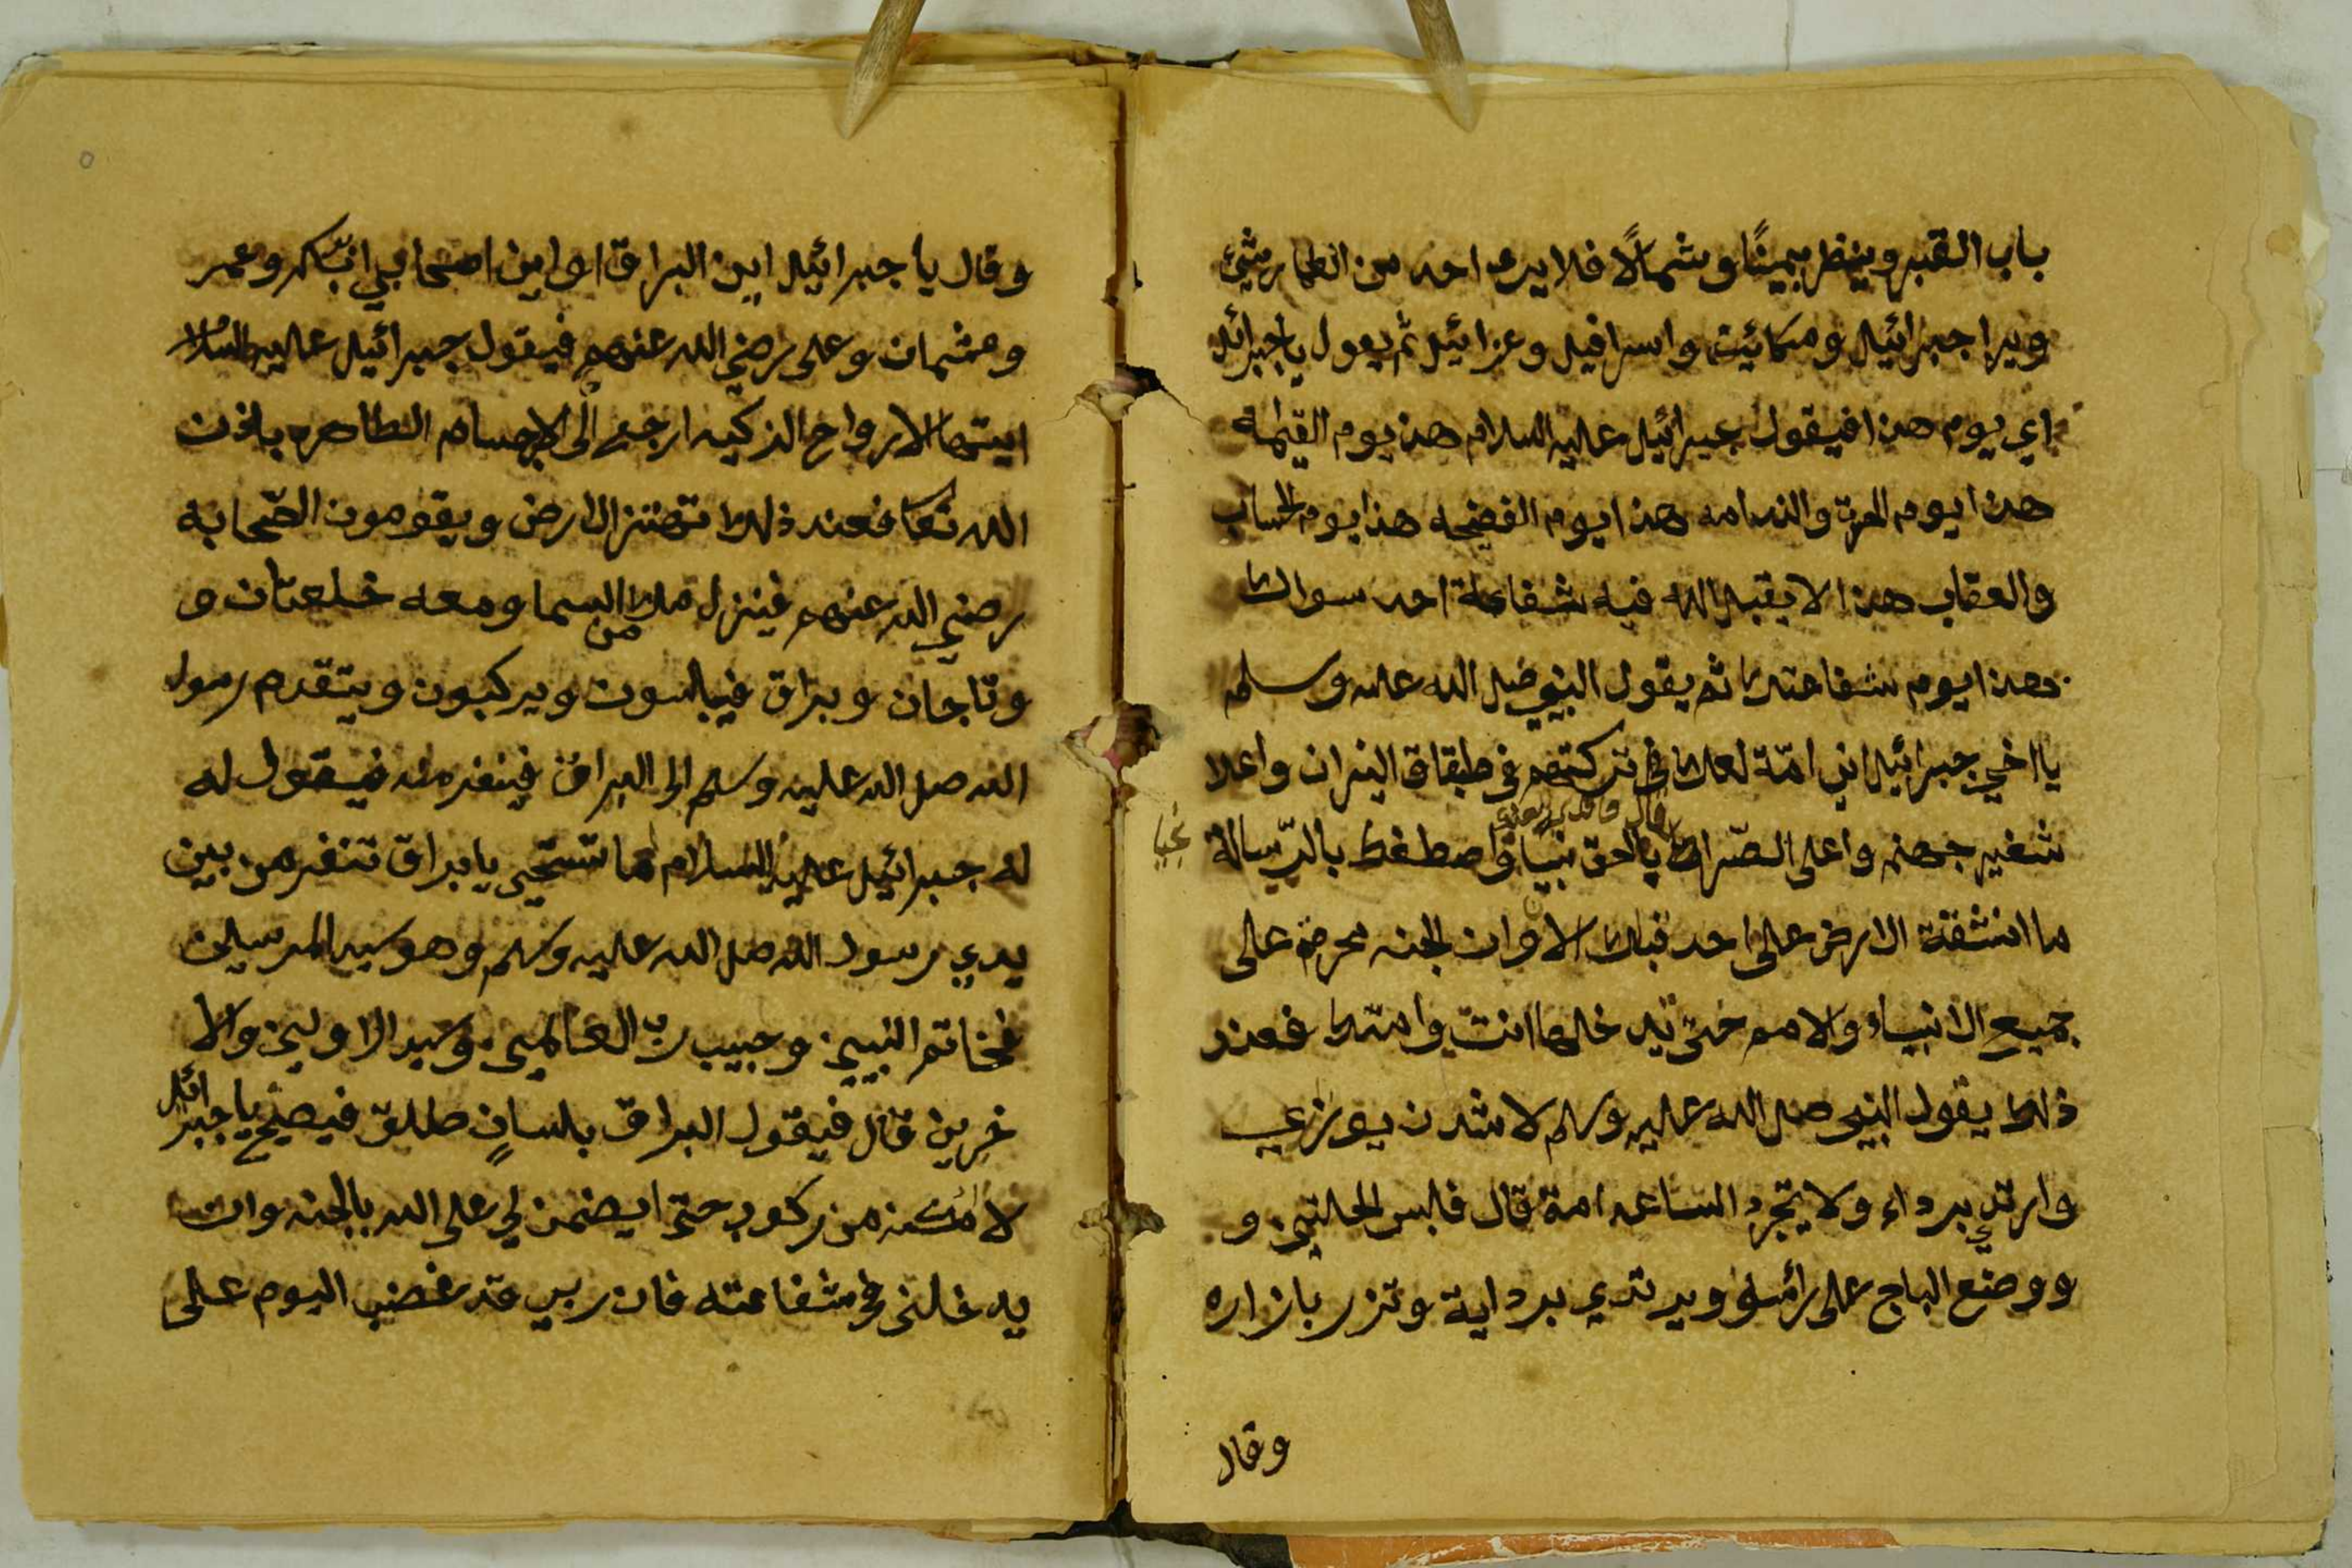 باب القبر وينظر يمينًا وشمالًا فلا يرى احد من انظار شئ
ويرا جبرائيل ومكائيل واسرافيل وعزرائيل ثم يقول ياجبرائيل
اي يوم هذا فيقول جبرائيل عليه السلام هذ يوم القيمة
هذا يوم والندامه هذا يوم الفضحه هذا يوم الحساب
والعقاب هذا لا يقبل الله فيه شفاعة احد سواك
هذا يوم شفاعتك ثم يقول النبي صل الله عليه وسلم
يا اخي جبرائيل اين امّة لعلك تركتهم في طبقاق النيران واعلا
شفير جهنم واعلى الصّراط قال بالحق نبيا واصطفك بالرّسالة
نجيا
ما انشقة الارض على احد قبلك الا وان الجنه محرمة على
جميع الانبياء والامم حتى تدخلها انت وامتك فعند
ذلك يقول النبي صل الله عليه وسلم لاشدن يوزري
وارتدي برداء ولا يتجرد الساعه امة قال فلبس الحلتين و
ووضع التاج على رأسه ويرتدي برداية وتزر بازاره
وقال
وقال يا جبرائيل اين البراق اواين اصحابي ابّكر وعمر
وعثمان وعلى رضي الله عنهم فيقول جبرائيل عليه السلا
ايتها الارواح الزكيه ارجع الى الاجسام الطاهره باذن
الله تعا فعند ذلك تهتز الارض ويقومون الصّحابة
رضي الله عنهم فينزل ملك من السما ومعه خلعتان و
وتاجان وبراق فيبلسون ويركبون ويتقدم رسول
الله صل الله عليه وسلم الى البراق فينفر منه فيقول له
له جبرائيل عليه السلام اما تستحي يا براق تنفر من بين
يدي رسول الله صل الله عليه وسلم وهو سيد المرسلين
خاتم النبيين وحبيب ربّ العالمين وسيد الاولين والا
خرين قال فيقول البراق بلسانٍ طلق فيصيح يا جبرائيل
لا امكنه من ركوب حتى ايضمن لي على الله بالجنه وان
يدخلنى في شفاعته فان ربي قد غضب اليوم على